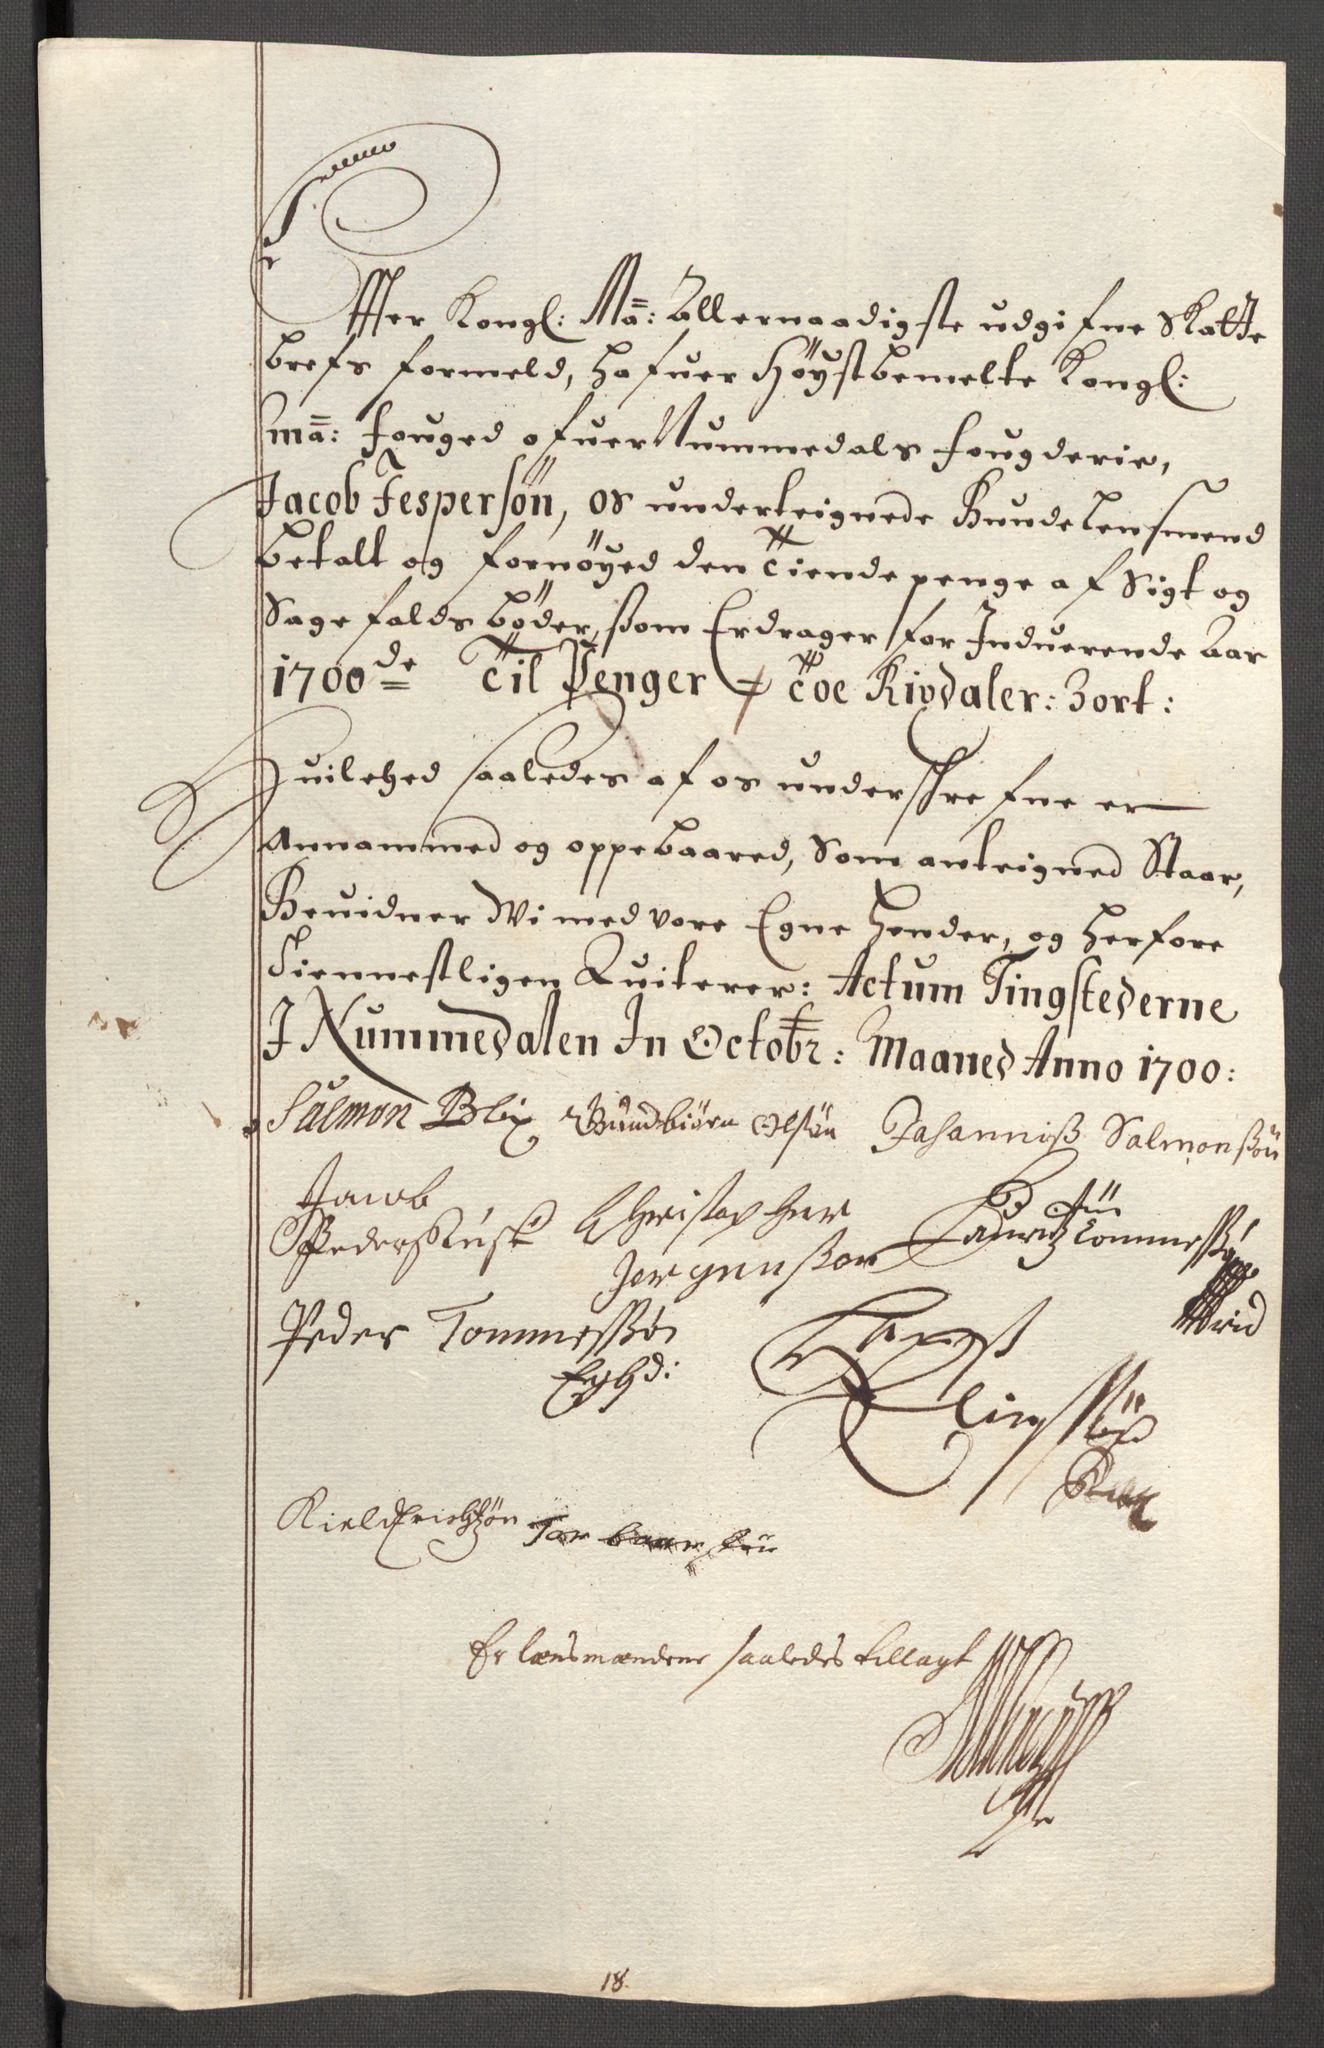 Effter Kongl: Ma: Allernaadigste udgifne Skatte
brefs formeld, hafuer Høystbemelte Kongl:
Ma: fouged ofuer Nummedals fougderie,
Jacob Jespersøn, os underteignede Bundelensmend
betalt og fornøyed den tiende penge af Sigt og
Sagefalds bøder, som Erdrager for Induerende Aar
1700de Til Penger Toe Rixdaler: 3 ort:
Huilched saaledes af os underskrefne er
Annammed og oppebaared, som anteigned Staar,
Beuidner Wi med vore Egne Hender, og herfore
tiennestligen Quiterer: Actum Tingstederne
J Nummedalen In Octobr: Maaned Anno 1700:
Salmon Blix Gundbiörn Olsön Johanniß Salmonßön
Jacob
Pederß Christopher Lauritz Tommeßön
Jørgenßøn
Peder Tommeßøn
Eghd:
Elingßøn
Kield Erichßøn
Er lensmændene saaledes tillagt
18.